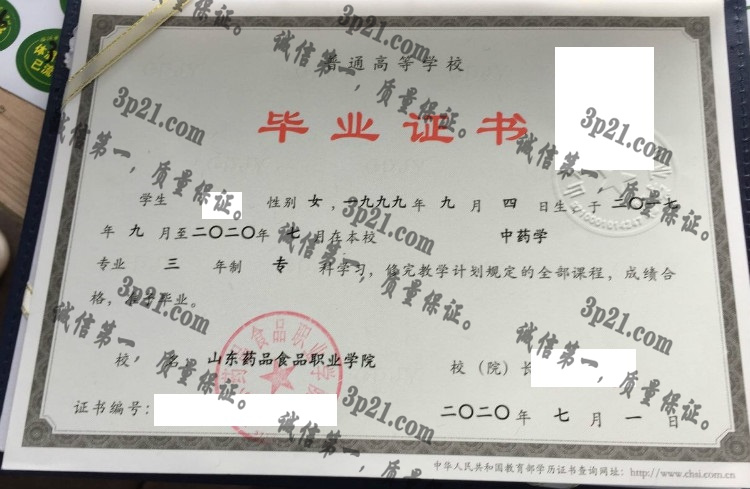 普通高等学校
毕业证书
学生 性别 女，一九九九年 九 月 四 日生，于 二〇一七
年 九 月至二〇二〇年 七 月在本校 中药学
专业 三 年制 专 科学习，修完教学计划规定的全部课程，成绩合
格，准予毕业。
校 名：山东药品食品职业学院 校（院）长
证书编号： 二〇二〇年 七 月 一 日
中华人民共和国教育部学历证书查询网址：http://www.chsi.com.cn
3p21.com
诚信第一，质量保证。
3p21.com
诚信第一，质量保证。
3p21.com
诚信第一，质量保证。
3p21.com
诚信第一，质量保证。
3p21.com
诚信第一，质量保证。
3p21.com
诚信第一，质量保证。
3p21.com
诚信第一，质量保证。
3p21.com
诚信第一，质量